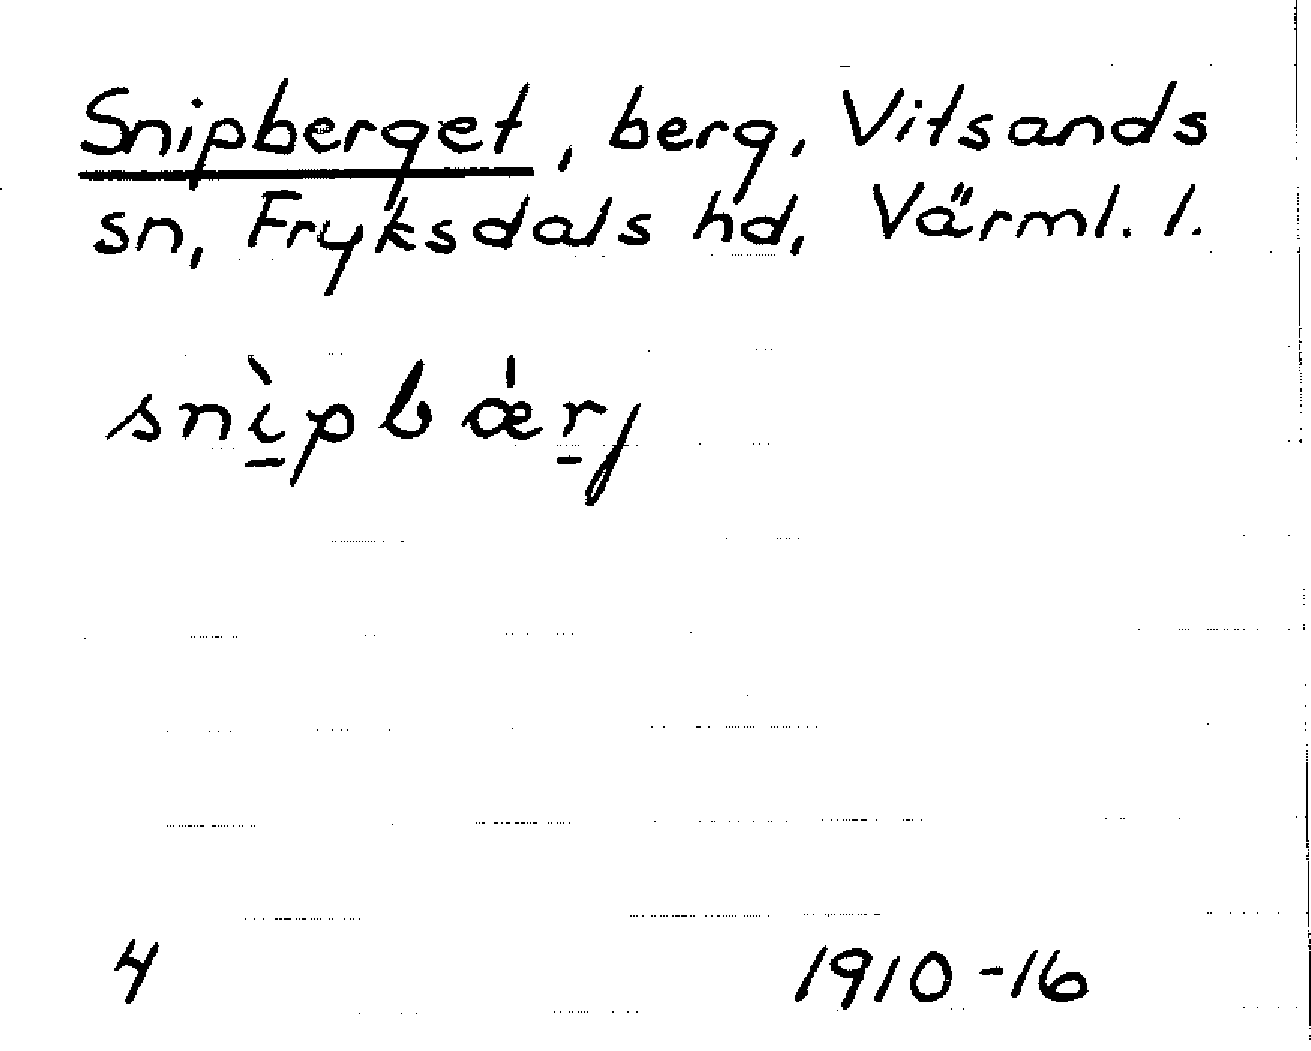 Snipberget, berg, Vitsands
sn, Fryksdals hd, Värml. l.
snìpbǽrj
4 1910-16